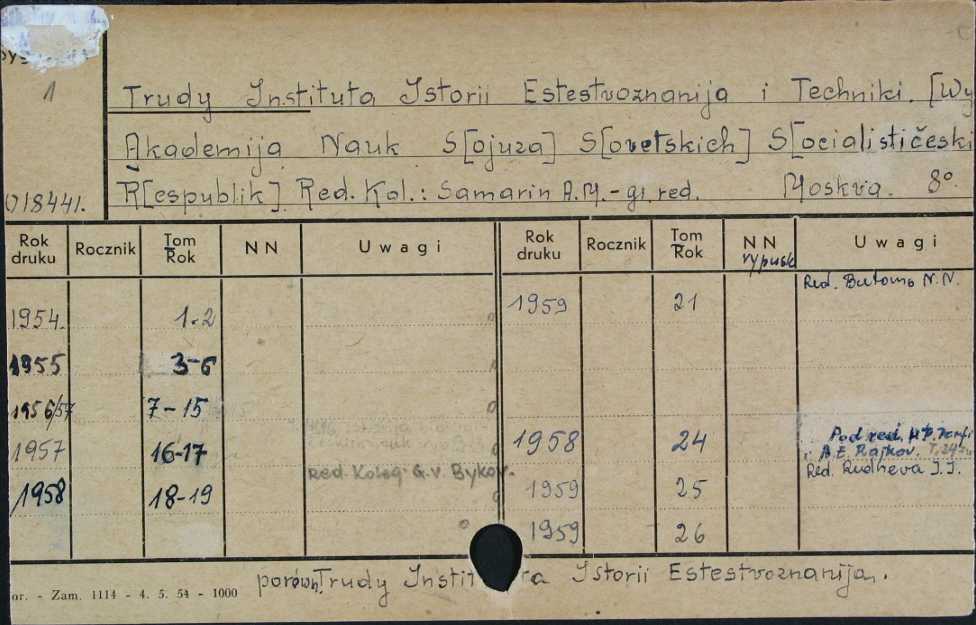 1
Trudy Instituta Istorii Estestvoznanija i Techniki. [Wy
Akademija Nauk S[ojuza] S[ovetskich] S[ocialističeski
R[espublik] Red. Kol.: Samarin A.M. - gl. red. Moskva. 8°.
018441.
Rok druku Rocznik Tom Rok NN Uwagi Rok druku Rocznik Tom Rok NN Uwagi
vypusk
Red. Butomo N.N.
1954. 1-2 1959 21
1955 3-6
1956/57 7-15
1957 16-17 1958 24 Pod red.
i A.E. Rajkov.
red. Koleg G.V. Bykov. Red. Rudneva I.I.
1958 18-19 1959 25
1959 26
porówn. Trudy Instit ta Istorii Estestvoznanija.
or. - Zam. 1114 - 4. 5. 54 - 1000